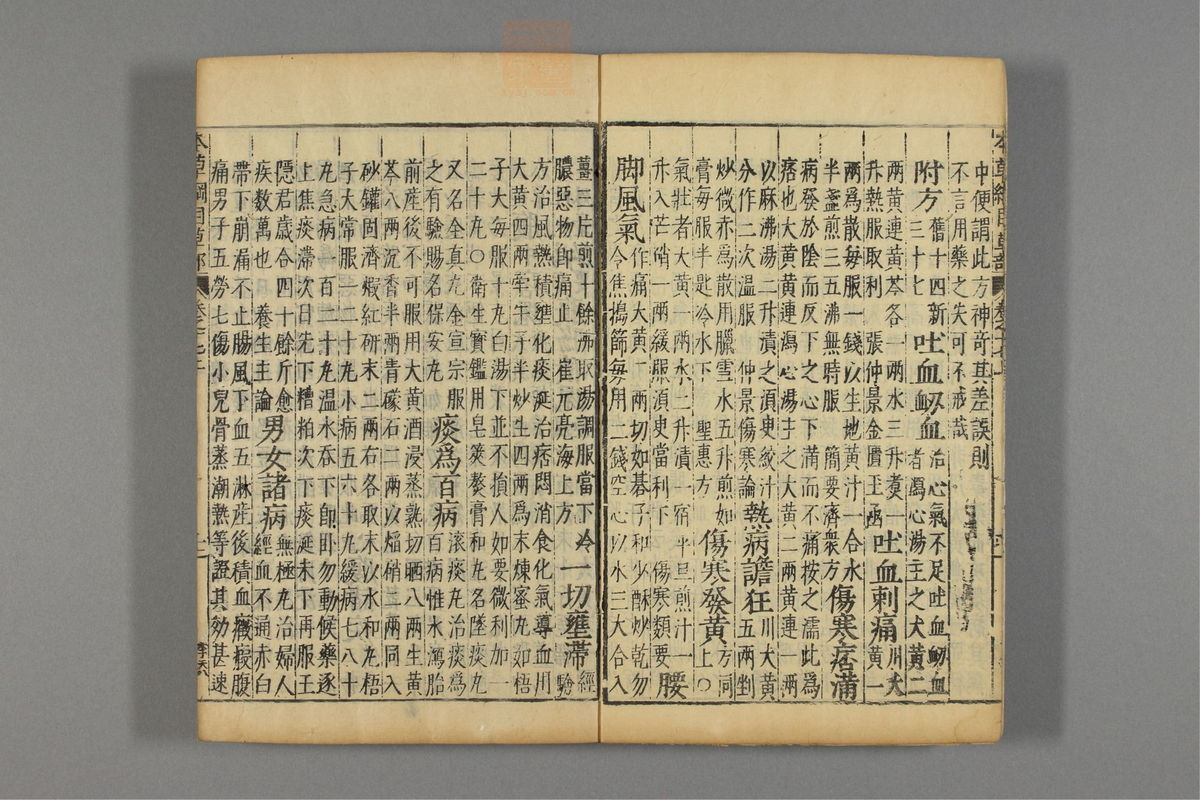 中便謂此方神奇其差誤則
不言用藥之失可不戒哉
附方舊十四新三十七吐血衄血治心氣不足吐血衄血者瀉心湯主之大黃二
兩黃連黃芩各一兩水三升煮一
升熱服取利 張仲景金匱玉函吐血刺痛川大黃一
兩爲散每服一錢以生地黃汁一合水
半盞煎三五沸無時服 簡要濟衆方傷寒痞滿
病發於陰而反下之心下滿而不痛按之濡此爲
痞也大黃黃連瀉心湯主之大黃二兩黃連一兩
以麻沸湯二升漬之須臾絞汁
分作二次溫服 仲景傷寒論熱病譫狂川大黃五兩剉
炒微赤爲散用臘雪水五升煎如
膏每服半匙冷水下 聖惠方傷寒發黃方同上○
氣壯者大黃一兩水二升漬一宿平旦煎汁一
升入芒硝一兩緩服須臾當利下 傷寒類要腰
脚風氣作痛大黃二兩切如碁子和少酥炒乾勿
令焦搗篩每用二錢空心以水三大合入
薑三片煎十餘沸取湯調服當下冷
膿惡物卽痛止 崔元亮海上方一切壅滯經驗
方治風熱積壅化痰涎治痞悶消食化氣導血用
大黃四兩牽牛子半炒生四兩爲末煉蜜丸如梧
子大每服十丸白湯下並不損人如要微利加一
二十丸○衞生寶鑑用皂莢熬膏和丸名墜痰丸
又名全真丸金宣宗服
之有驗賜名保安丸痰爲百病滾痰丸治痰爲百病惟水瀉胎
前産後不可服用大黃酒浸蒸熟切晒八兩生黃
芩八兩沉香半兩青礞石二兩以焰硝二兩同入
砂罐固濟煅紅研末二兩右各取末以水和丸梧
子大常服一二十丸小病五六十丸緩病七八十
丸急病一百二十丸溫水吞下卽卧勿動候藥逐
上焦痰滯次日先下糟粕次下痰涎未下再服王
隱君歲合四十餘斤愈
疾數萬也 養生主論男女諸病無極丸治婦人經血不通赤白
帶下崩漏不止腸風下血五淋産後積血癥瘕腹
痛男子五勞七傷小兒骨蒸潮熱等證其効甚速
本草綱目草部